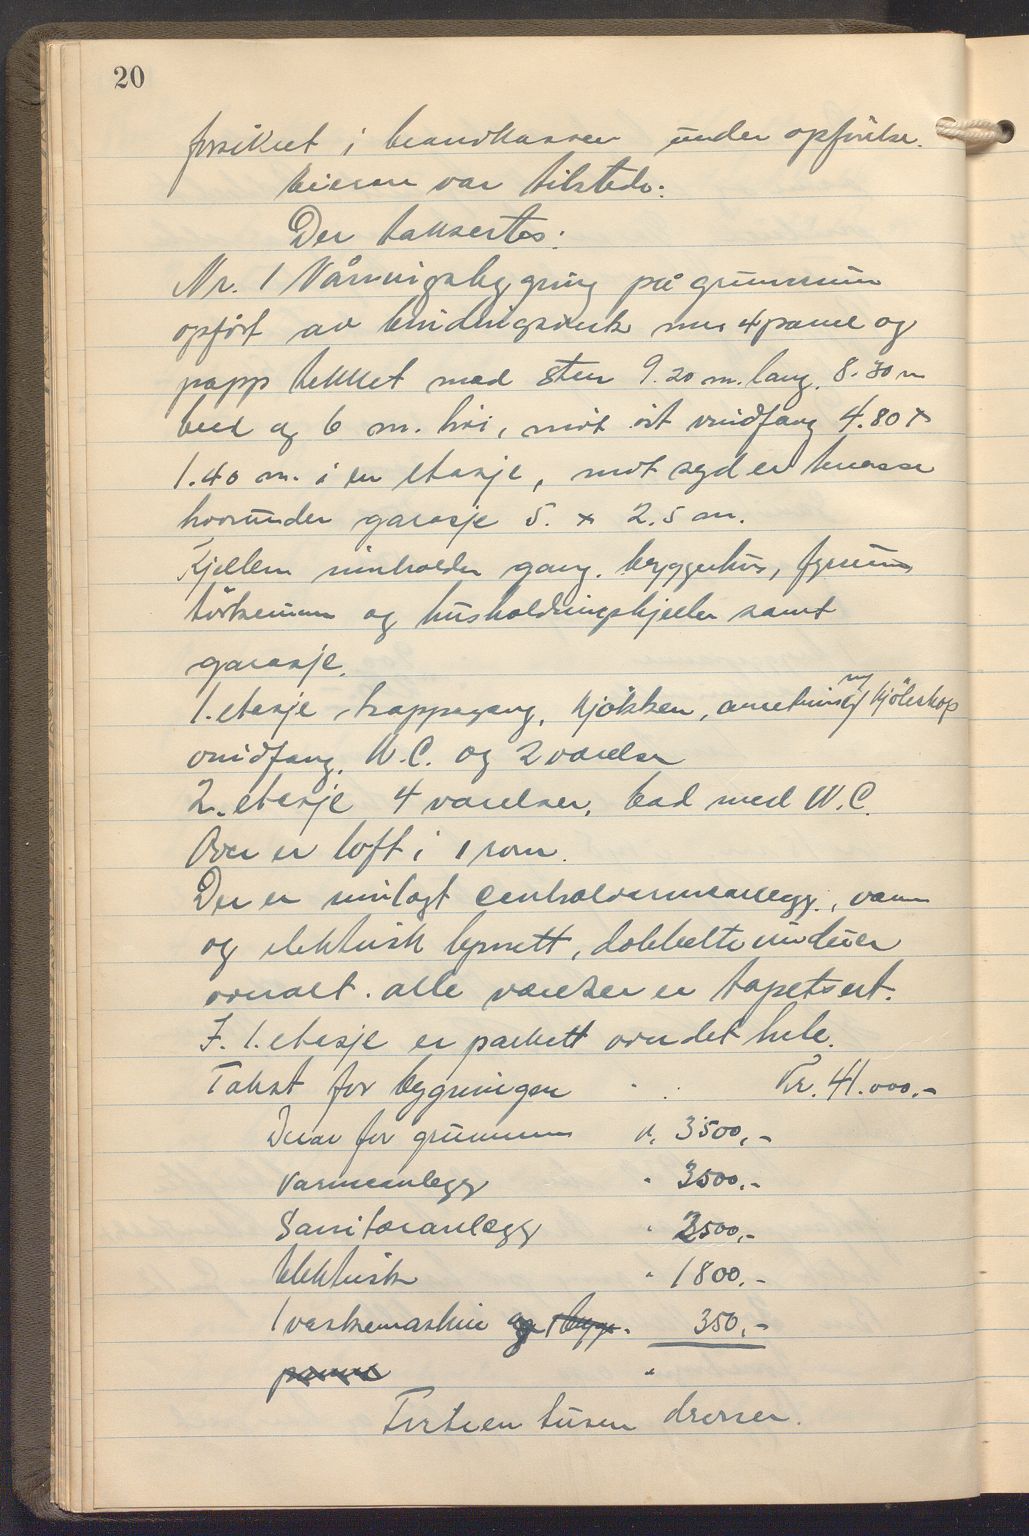 20
forsikret i brandkassen under opförelse.
Eieren var tilstede.
Der taksertes:
Nr. 1 Våningsbygning på grunnmur
opfört av bindingsverk med 4 panel og
papp tekket med sten 9.20 m. lang. 8.30 m
bred og 6 m. höi, mot öst vindfang 4.80 x
1.40 m. i en etasje, mot syd er terasse
hvorunder garasje 5. x 2.5 m.
Kjelleren inneholder gang. bryggerhus, fyrrum
törkerum og husholdningskjeller samt
garasje.
1. etasje trappegang, kjökken, anretning m/ kjöleskap
vindfang, W.C. og 2 værelser
2. etasje 4 værelser, bad med W.C.
Over er loft i 1 rom.
Der er innlagt centralvarmeanlegg, vann
og elektrisk lysnett, dobbelte vinduer
overalt. alle værelser er tapetsert.
I. 1. etasje er parkett over det hele.
Takst for bygningen Kr. 41.000.-
Derav for grunnmur kr. 3500,-
Varmeanlegg " 3500.-
Sanitæranlegg " 2500,-
Elektrisk " 1800.-
1 vaskemaskin og 1 brygge- 350,-
panne "
Firtien tusen kroner.